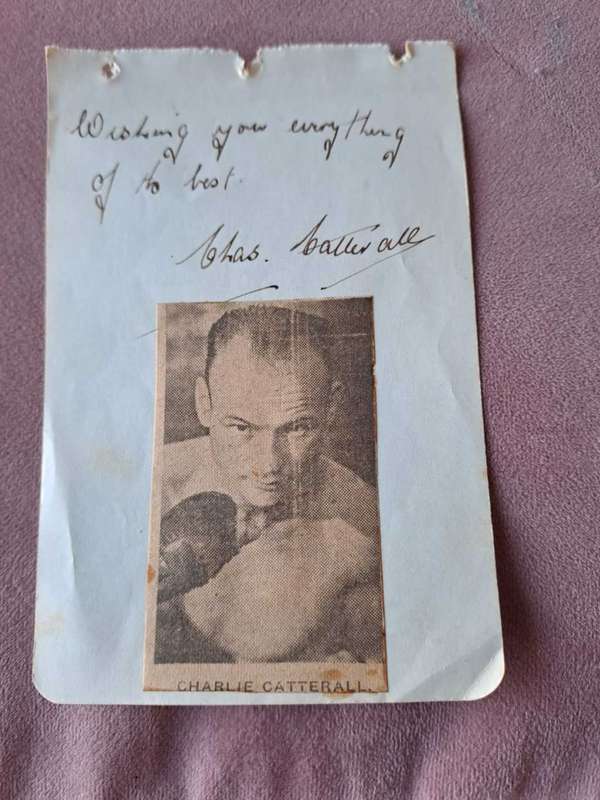 Wishing you everything
of the best.
Chas. Catterall
CHARLIE CATTERALL.